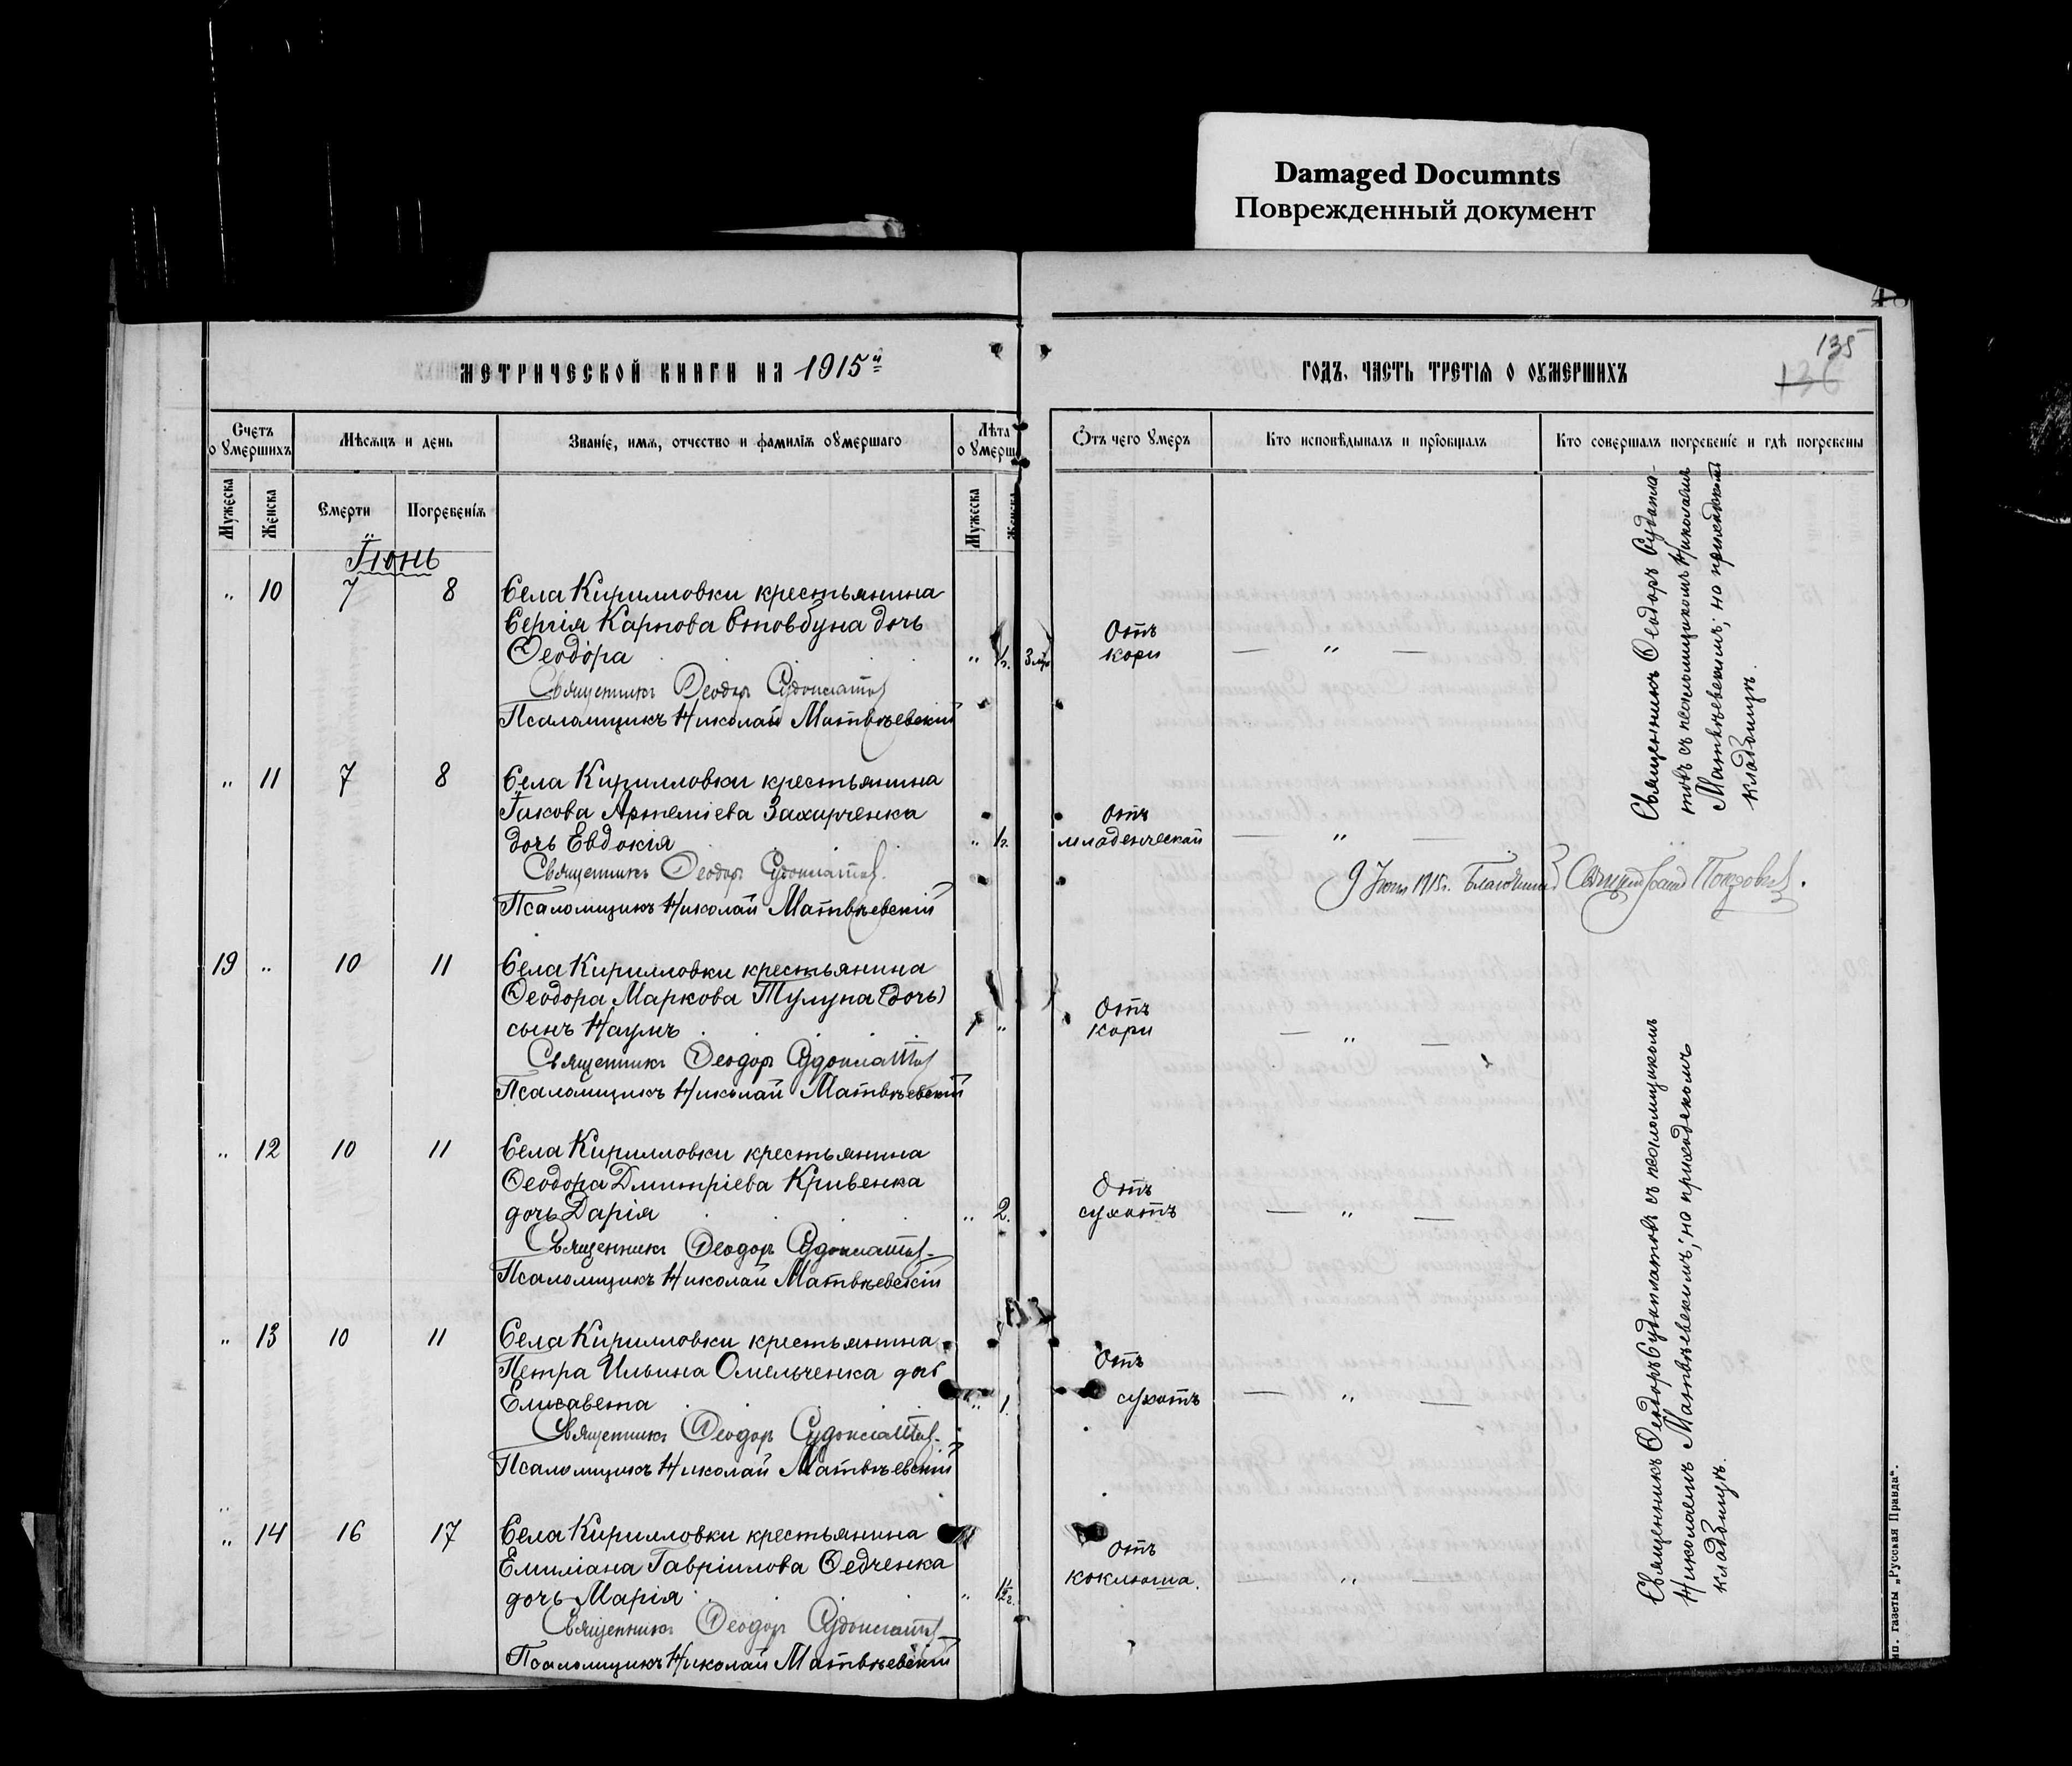 Damaged Documnts
Поврежденный документ
135
136
МЕТРИЧЕСКОЙ КНИГИ НА 1915й
ГОДЪ, ЧАСТЬ ТРЕТІЯ О ОУМЕРШИХЪ
Счетъ
о Умершихъ
Мѣсяцъ и день
Званіе, имя, отчество и фамилія оумершаго
Лѣта
о Умерш
Отъ чего Умеръ
Кто исповѣдывалъ и пріобщалъ
Кто совершалъ погребеніе и гдѣ погребены
Мужеска
Женска
Смерти
Погребенія
Мужеска
Женска
Іюнь
„ 10 7 8 Села Кирилловки крестьянина
Сергія Карпова Стовбуна дочь
Ѳеодора „ 1г. 3 Отъ кори — „ —
Священникъ Ѳеодоръ Судоплатов
Псаломщикъ Николай Матвѣевскій
„ 11 7 8 Села Кирилловки крестьянина
Іакова Артеміева Захарченка
дочь Евдокія „ 1г. Отъ младенческой — „ —
Священникъ Ѳеодоръ Судоплатов.
Псаломщикъ Николай Матвѣевскій
9 Іюня 1915г. Благочинный Священникъ
19 „ 10 11 Села Кирилловки крестьянина
Ѳеодора Маркова Тулупа (дочь)
сынъ Наумъ 1 „ Отъ кори — „ —
Священникъ Ѳеодоръ Судоплатов
Псаломщикъ Николай Матвѣевскій
„ 12 10 11 Села Кирилловки крестьянина
Ѳеодора Дмитріева Кривенка
дочь Дарія „ 2. Отъ сухотъ — „ —
Священникъ Ѳеодоръ Судоплатов
Псаломщикъ Николай Матвѣевскій
„ 13 10 11 Села Кирилловки крестьянина
Петра Ильина Омельченка дочь
Елисавета „ 1. Отъ сухотъ — „ —
Священникъ Ѳеодоръ Судоплатов
Псаломщикъ Николай Матвѣевскій
„ 14 16 17 Села Кирилловки крестьянина
Емиліана Гавріилова Ѳедченка
дочь Марія „ 1½г. Отъ коклюша. — „ —
Священникъ Ѳеодоръ Судоплатов
Псаломщикъ Николай Матвѣевскій
Священникъ Ѳеодоръ Судопла-
товъ съ псаломщикомъ Николаемъ
Матвѣевскимъ; на приходскомъ
кладбищѣ.
Священникъ Ѳеодоръ Судоплатовъ съ псаломщикомъ
Николаемъ Матвѣевскимъ; на приходскомъ
кладбищѣ.
ип. газеты „Русская Правда“.